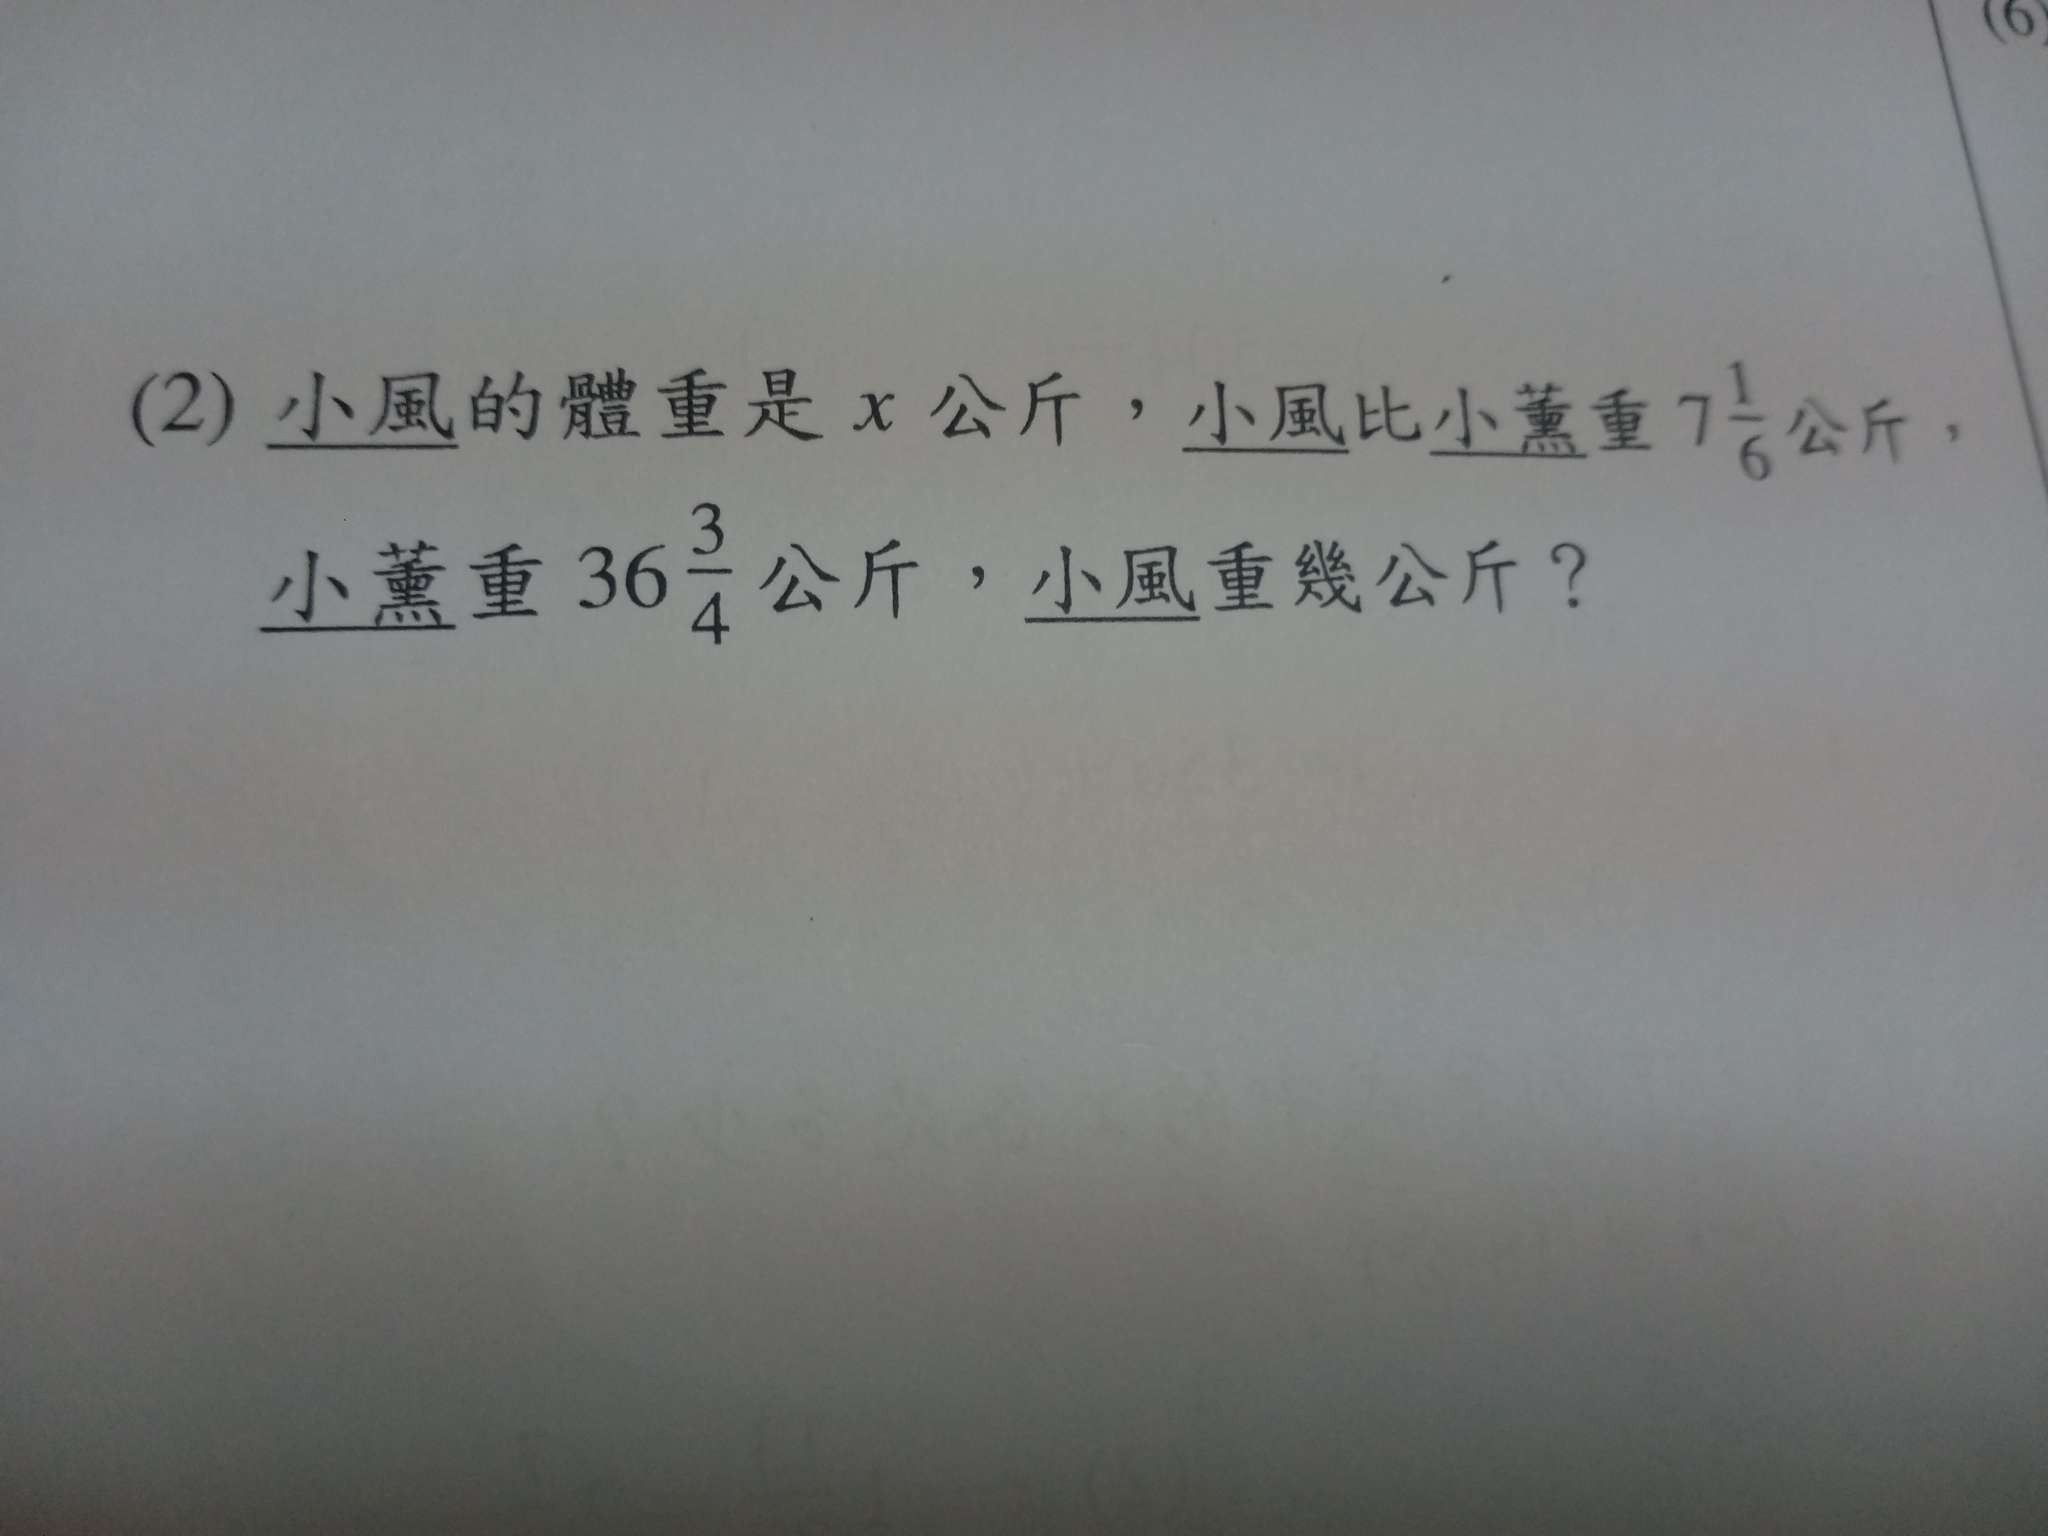 (6)
(2) 小風的體重是 x 公斤，小風比小薰重 7 1/6 公斤，
小薰重 36 3/4 公斤，小風重幾公斤？